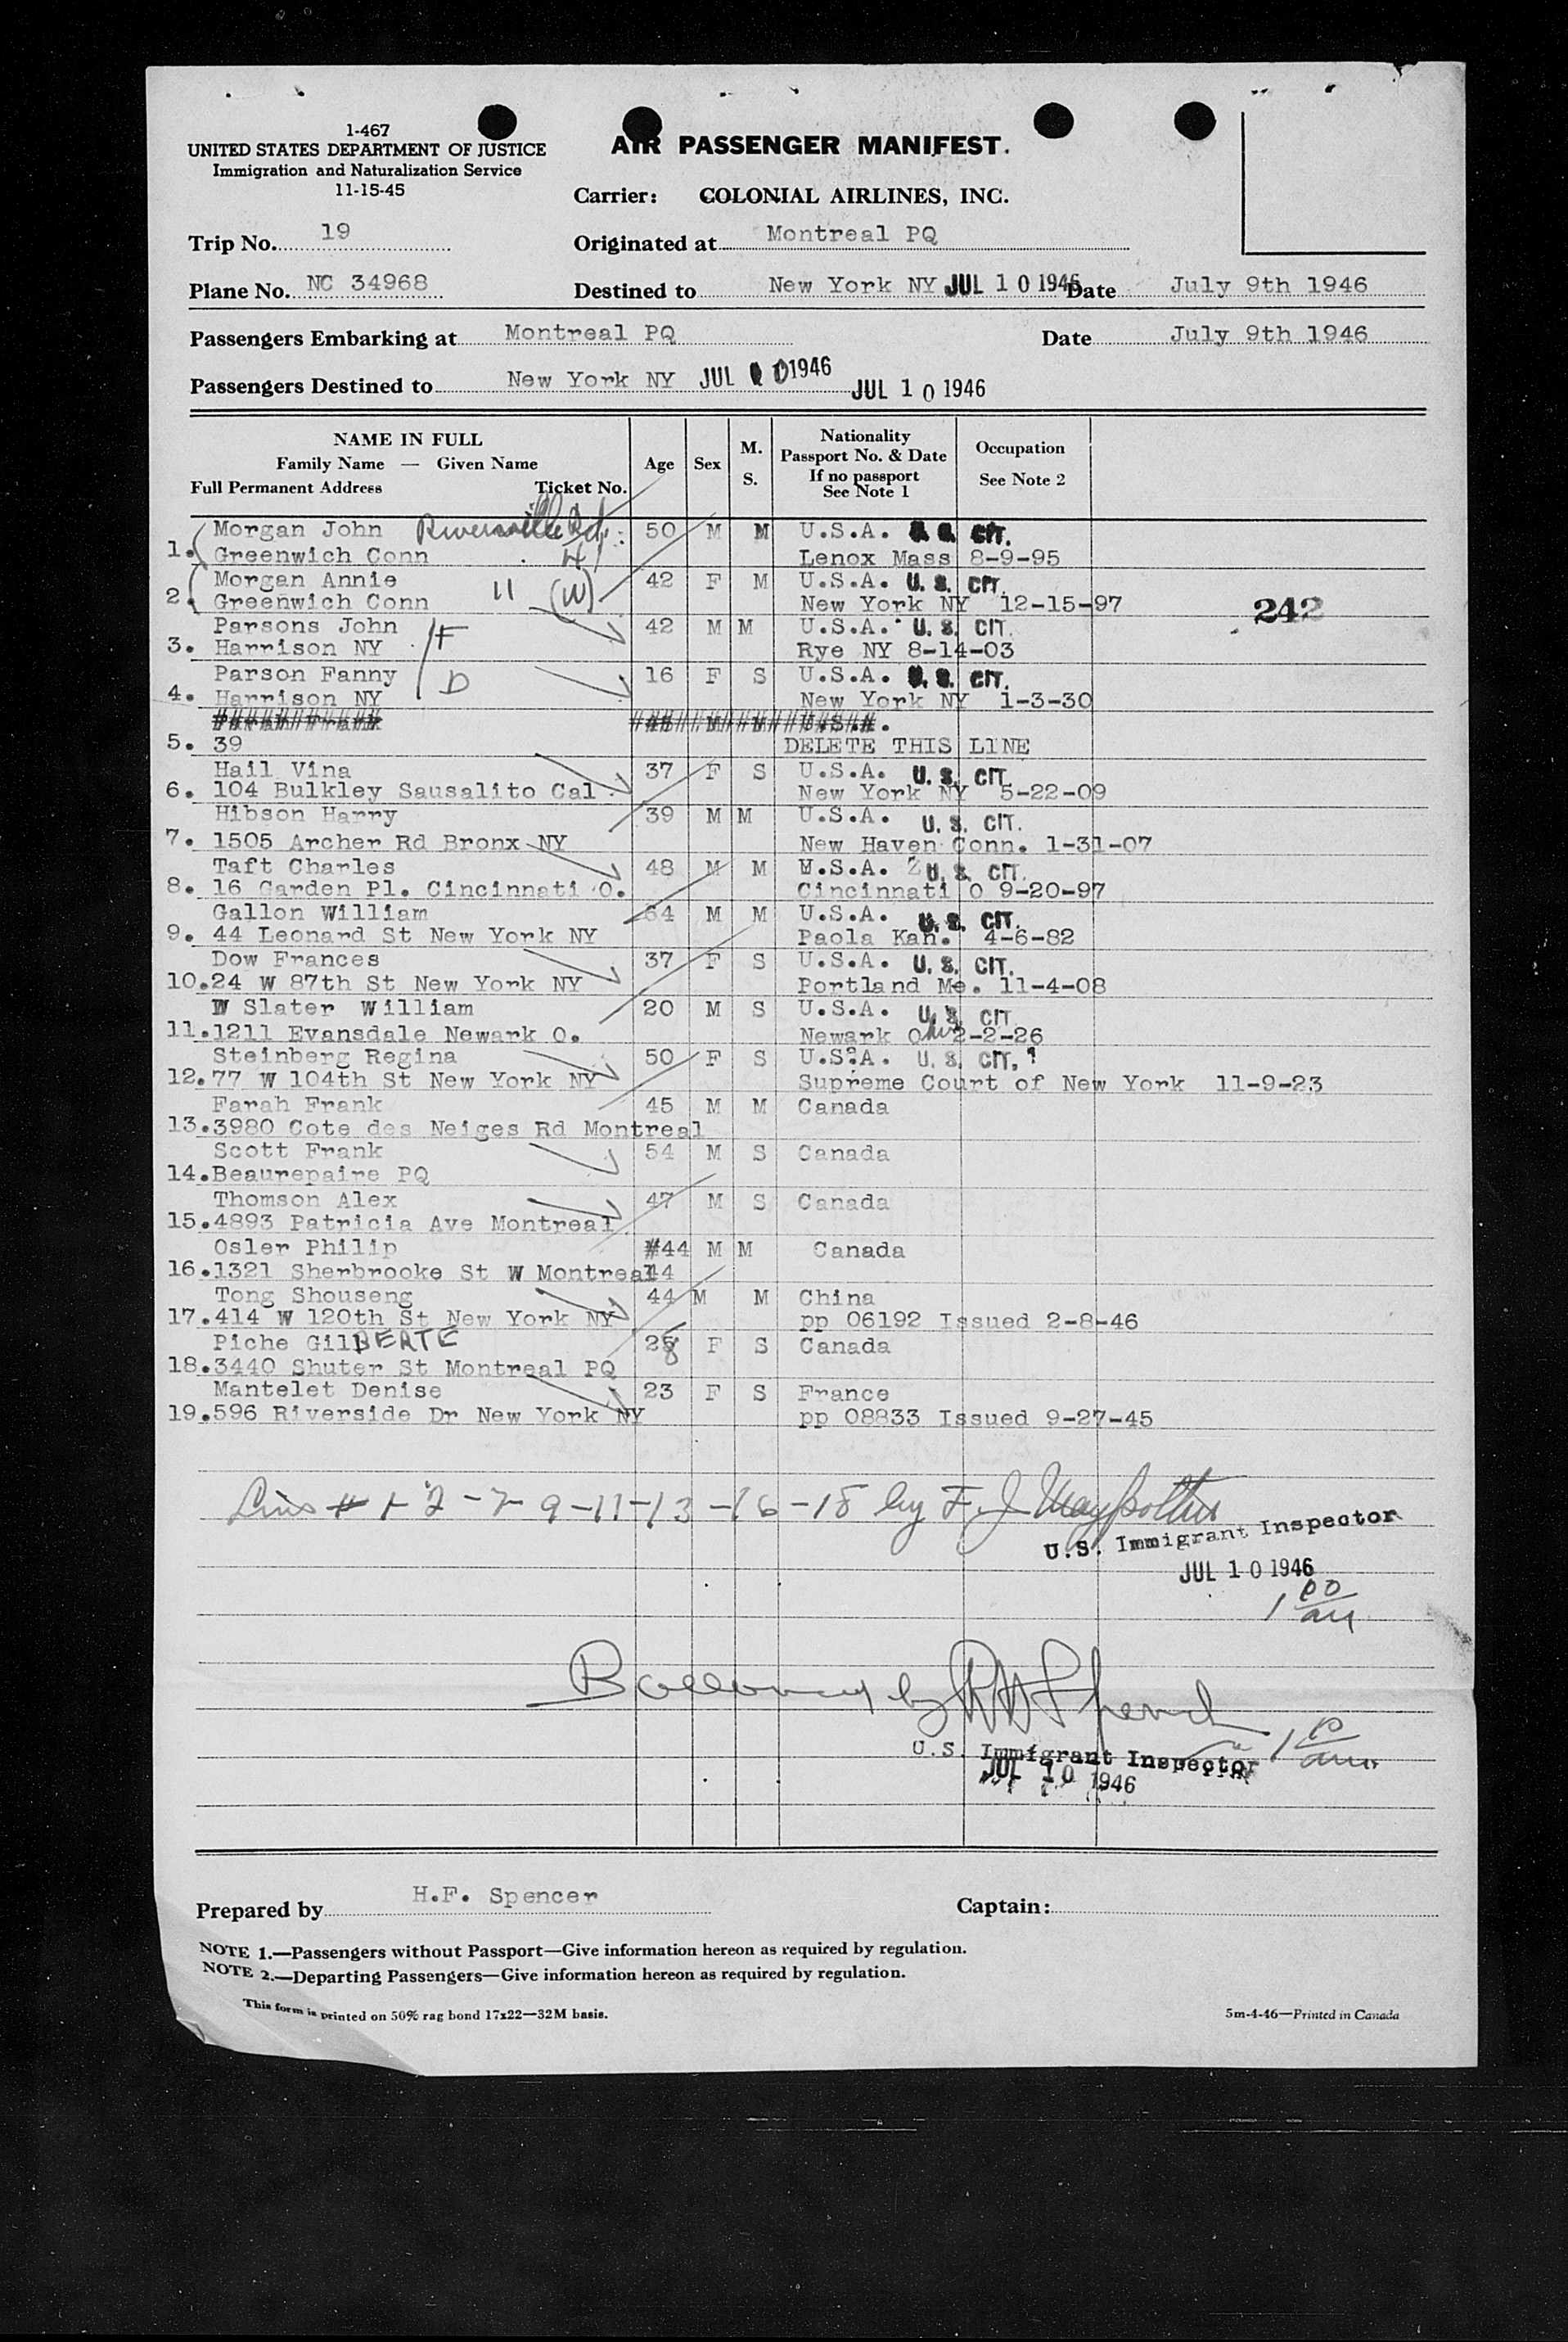 1-467
UNITED STATES DEPARTMENT OF JUSTICE
Immigration and Naturalization Service
11-15-45
AIR PASSENGER MANIFEST.
Carrier: COLONIAL AIRLINES, INC.
Trip No. 19
Originated at Montreal PQ
Plane No. NC 34968
Destined to New York NY JUL 10 1946 Date July 9th 1946
Passengers Embarking at Montreal PQ Date July 9th 1946
Passengers Destined to New York NY JUL 10 1946 JUL 10 1946
NAME IN FULL
Family Name — Given Name
Full Permanent Address Ticket No.
Age
Sex
M.
S.
Nationality
Passport No. & Date
If no passport
See Note 1
Occupation
See Note 2
Morgan John Riversville Rd. 50 M M U.S.A. U. S. CIT.
1. Greenwich Conn H Lenox Mass 8-9-95
Morgan Annie 42 F M U.S.A. U. S. CIT.
2. Greenwich Conn 11 (W) New York NY 12-15-97
242
Parsons John F 42 M M U.S.A. U. S. CIT.
3. Harrison NY Rye NY 8-14-03
Parson Fanny 16 F S U.S.A. U. S. CIT.
4. Harrison NY D New York NY 1-3-30
5. 39 DELETE THIS LINE
Hail Vina 37 F S U.S.A. U. S. CIT.
6. 104 Bulkley Sausalito Cal New York NY 5-22-09
Hibson Harry 39 M M U.S.A. U. S. CIT.
7. 1505 Archer Rd Bronx NY New Haven Conn. 1-31-07
Taft Charles 48 M M U.S.A. U. S. CIT.
8. 16 Garden Pl. Cincinnati O. Cincinnati O 9-20-97
Gallon William 64 M M U.S.A. U. S. CIT.
9. 44 Leonard St New York NY Paola Kan. 4-6-82
Dow Frances 37 F S U.S.A. U. S. CIT.
10. 24 W 87th St New York NY Portland Me. 11-4-08
W Slater William 20 M S U.S.A. U. S. CIT
11. 1211 Evansdale Newark O. Newark O 2-2-26
Steinberg Regina 50 F S U.S.A. U. S. CIT.
12. 77 W 104th St New York NY Supreme Court of New York 11-9-23
Farah Frank 45 M M Canada
13. 3980 Cote des Neiges Rd Montreal
Scott Frank 54 M S Canada
14. Beaurepaire PQ
Thomson Alex 47 M S Canada
15. 4893 Patricia Ave Montreal
Osler Philip #44 M M Canada
16. 1321 Sherbrooke St W Montreal 44
Tong Shouseng 44 M M China
17. 414 W 120th St New York NY pp 06192 Issued 2-8-46
Piche GilBERTE 28 F S Canada
18. 3440 Shuter St Montreal PQ
Mantelet Denise 23 F S France
19. 596 Riverside Dr New York NY pp 08833 Issued 9-27-45
# 1-2-7-9-11-13-16-18 by F. J.
U.S. Immigrant Inspector
JUL 10 1946
1 00 am
by
U.S. Immigrant Inspector
JUL 10 1946
Prepared by H.F. Spencer
Captain:
NOTE 1.—Passengers without Passport—Give information hereon as required by regulation.
NOTE 2.—Departing Passengers—Give information hereon as required by regulation.
This form is printed on 50% rag bond 17x22—32M basis.
5m-4-46—Printed in Canada